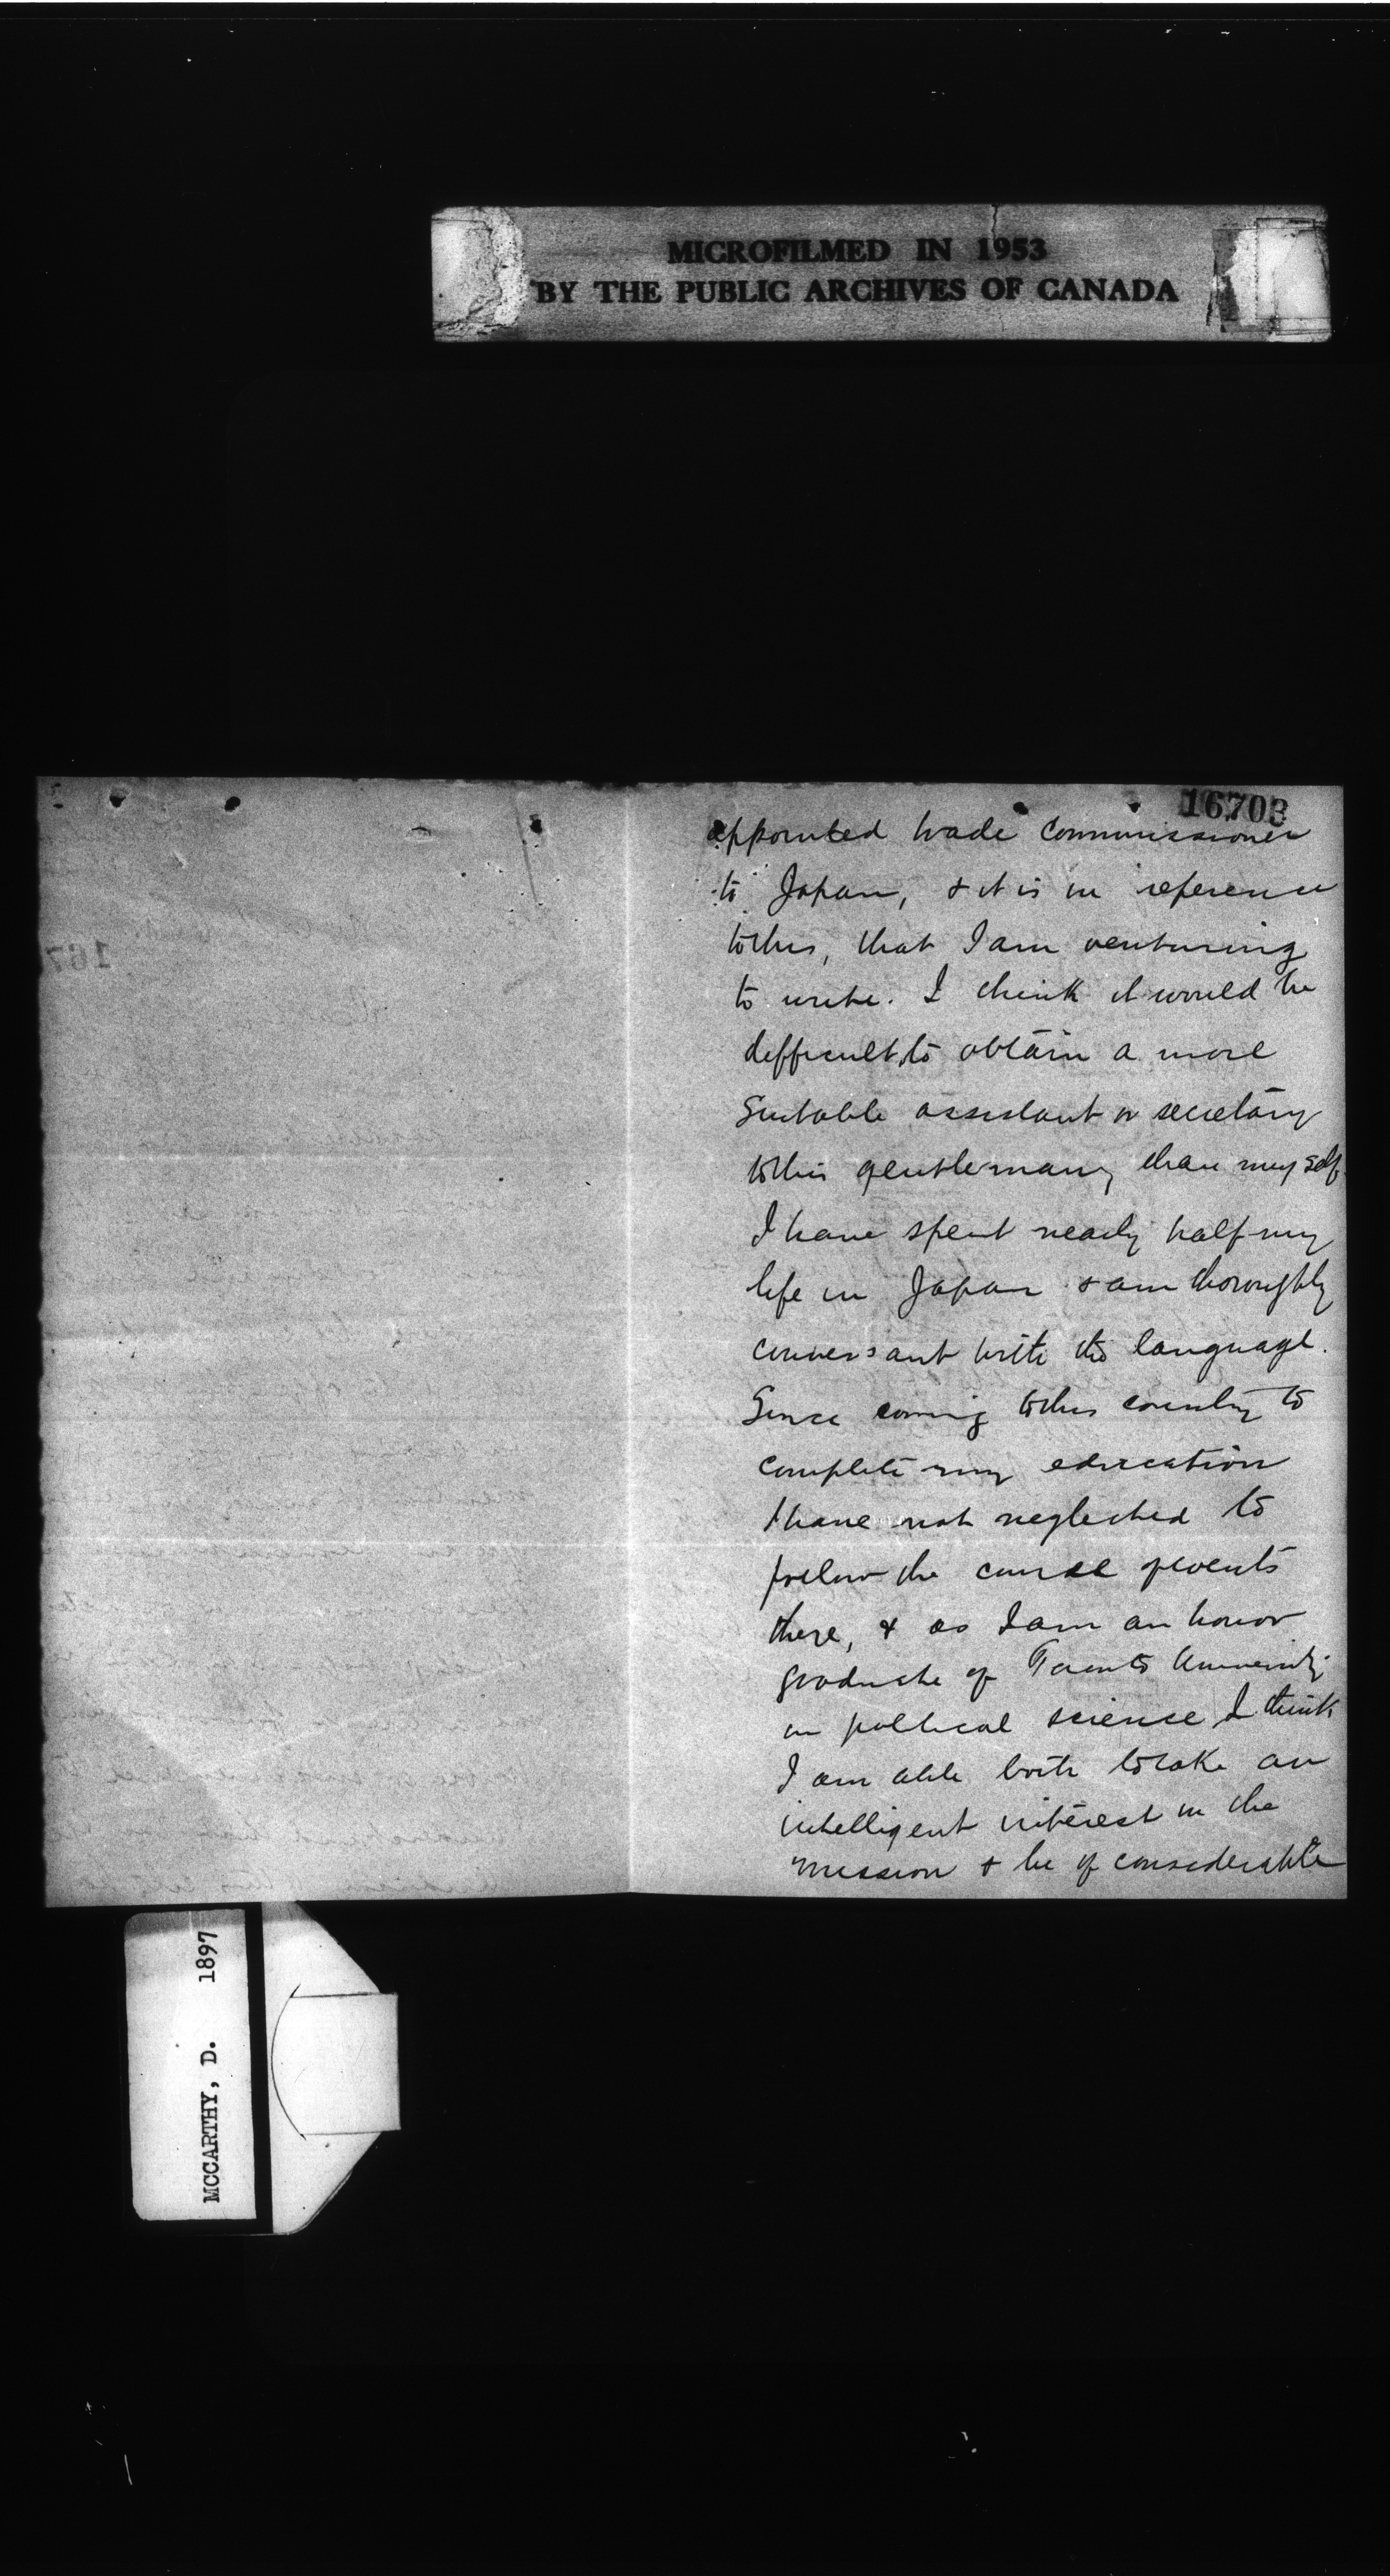 MICROFILMED IN 1953
BY THE PUBLIC ARCHIVES OF CANADA
16703
appointed trade commissioner
to Japan, & it is in reference
to this, that I am venturing
to write. I think it would be
difficult to obtain a more
suitable assistant or secretary
to this gentleman, than myself.
I have spent nearly half my
life in Japan & am thoroughly
conversant with its language.
Since coming to this country to
complete my education
I have not neglected to
follow the course of events
there, & as I am an honor
graduate of Toronto University
in political science I think
I am able both to take an
intelligent interest in the
mission & be of considerable
MCCARTHY, D. 1897